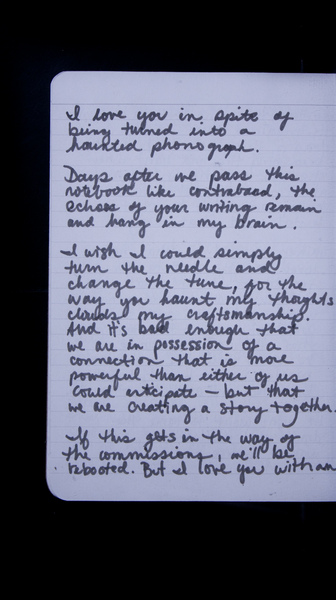 I love you in spite of
being turned into a
haunted phonograph.
Days after we pass this
notebook like contraband, the
echoes of your writing remain
and hang in my brain.
I wish I could simply
turn the needle and
change the tune, for the
way you haunt my thoughts
clouds my craftsmanship.
And it's bad enough that
we are in possession of a
connection that is more
powerful than either of us
could anticipate - but that
we are creating a story together.
If this gets in the way of
the commissions, we'll be
rebooted. But I love you with an